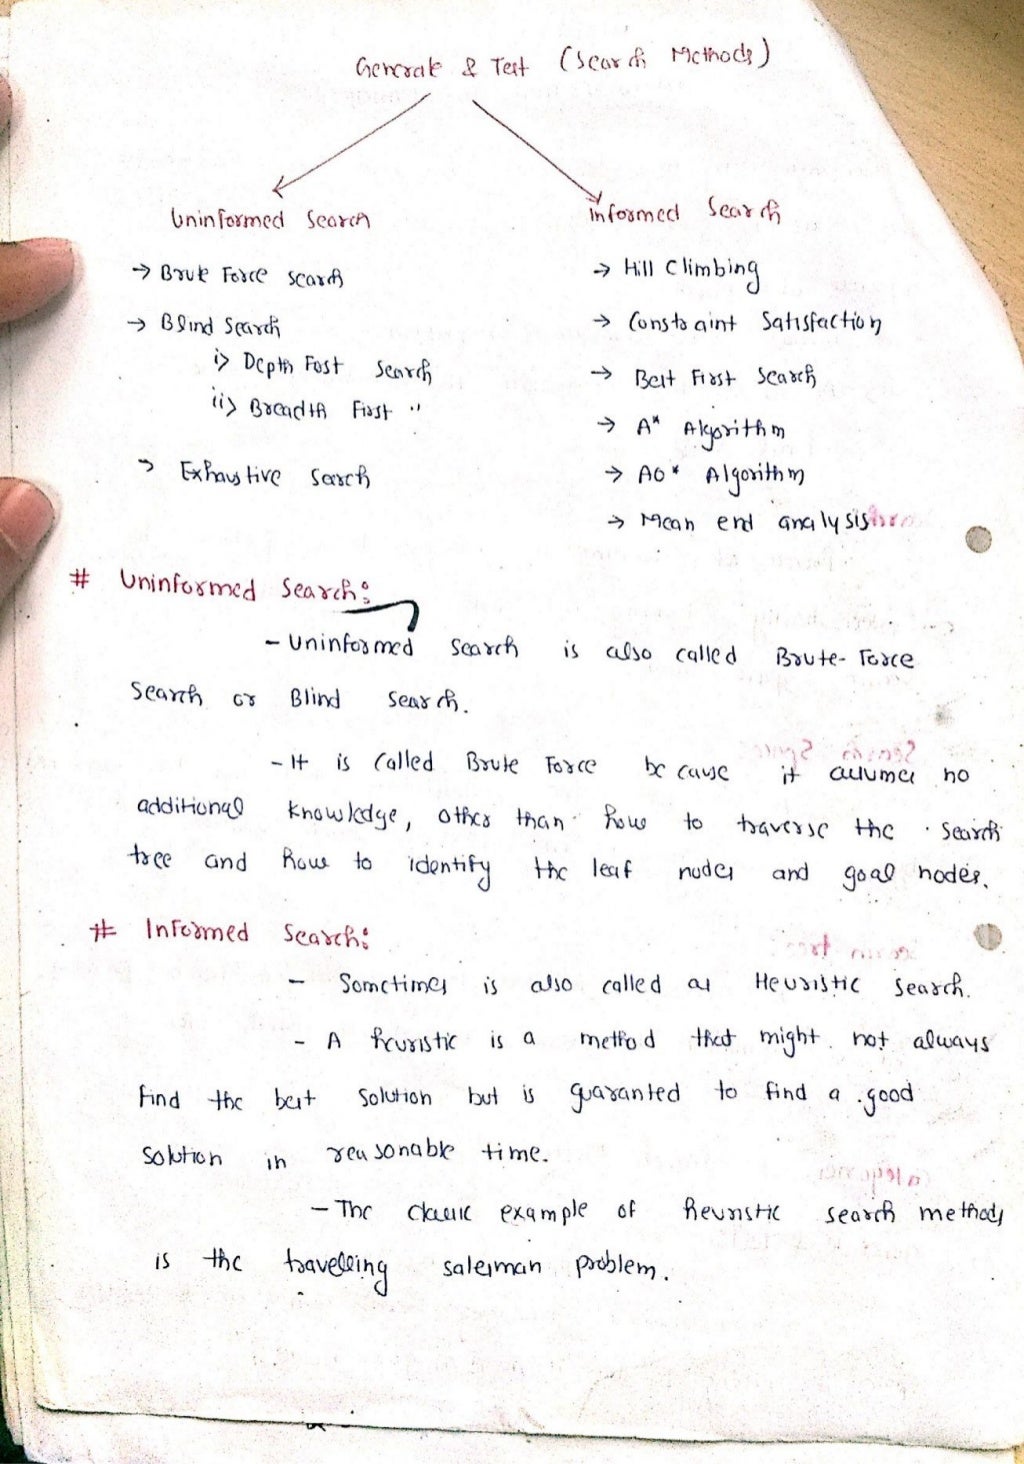 Generate & Test (Search Methods)
Uninformed Search
→ Brute Force search
→ Blind Search
i> Depth Fost Search
ii> Breadth First "
→ Exhaustive Search
Informed Search
→ Hill Climbing
→ Constraint Satisfaction
→ Best First Search
→ A* Algorithm
→ AO* Algorithm
→ Mean end analysis
# Uninformed Search:
- Uninformed Search is also called Brute-Force
Search or Blind Search.
- It is Called Brute Force because it assumes no
additional Knowledge, other than how to traverse the search
tree and how to identify the leaf nodes and goal nodes.
# Informed Search:
- Sometimes is also called as Heuristic Search.
- A heuristic is a method that might not always
find the best solution but is guaranted to find a good
solution in reasonable time.
- The classic example of heuristic search methods
is the travelling salesman problem.